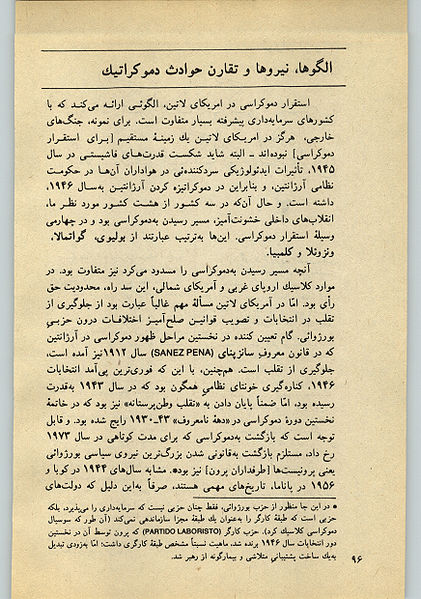 الگوها، نیروها و تقارن حوادث دموکراتیك
استقرار دموکراسی در امریکای لاتین، الگوئی ارائه می‌کند که با
کشورهای سرمایه‌داری پیشرفته بسیار متفاوت است. برای نمونه، جنگ‌های
خارجی، هرگز در امریکای لاتین یك زمینهٔ مستقیم [برای استقرار
دموکراسی] نبوده‌اند ـ البته شاید شکست قدرت‌های فاشیستی در سال
۱۹۴۵، تأثیرات ایدئولوژیکی سردکننده‌ئی در هواداران آن‌ها در حکومت
نظامی آرژانتین، و بنابراین در دموکراتیزه کردن آرژانتین به‌سال ۱۹۴۶،
داشته است. و حال آن‌که در سه کشور از هشت کشور مورد نظر ما،
انقلاب‌های داخلی خشونت‌آمیز، مسیر رسیدن به‌دموکراسی بود و در چهارمی
وسیلهٔ استقرار دموکراسی. این‌ها به‌ترتیب عبارتند از بولیوی، گواتمالا،
ونزوئلا و کلمبیا.
آنچه مسیر رسیدن به‌دموکراسی را مسدود می‌کرد نیز متفاوت بود. در
موارد کلاسیك اروپای غربی و آمریکای شمالی، این سد راه، محدودیت حق
رأی بود. امّا در آمریکای لاتین مسألهٔ مهم غالباً عبارت بود از جلوگیری از
تقلب در انتخابات و تصویب قوانین صلح‌آمیز اختلافات درون حزبی
بورژوائی. گام تعیین کننده در نخستین مراحل ظهور دموکراسی در آرژانتین
که در قانون معروف سانزپنای (SANEZ PENA) سال ۱۹۱۲ نیز آمده است،
جلوگیری از تقلب است. هم‌چنین، با این که فوری‌ترین پی‌آمد انتخابات
۱۹۴۶، کناره‌گیری خونتای نظامی همگون بود که در سال ۱۹۴۳ به‌قدرت
رسیده بود، امّا ضمناً پایان دادن به «تقلب وطن‌پرستانه» نیز بود که در خاتمهٔ
نخستین دورهٔ دموکراسی در «دههٔ نامعروف» ۴۳ـ۱۹۳۰ رایج شده بود. و قابل
توجه است که بازگشت به‌دموکراسی که برای مدت کوتاهی در سال ۱۹۷۳
رخ داد، مستلزم بازگشت به‌قانونی شدن بزرگ‌ترین نیروی سیاسی بورژوائی
یعنی پرونیست‌ها [طرفداران پرون] نیز بود●. مشابه سال‌های ۱۹۴۴ در کوبا و
۱۹۵۶ در پاناما، تاریخ‌های مهمی هستند، صرفاً به‌این دلیل که دولت‌های
● در این جا منظور از حزب بورژوائی، فقط چنان حزبی نیست که سرمایه‌داری را می‌پذیرد، بلکه
حزبی است که طبقهٔ کارگر را به‌عنوان یك طبقهٔ مجزا سازماندهی نمی‌کند (آن طور که سوسیال
دموکراسی کلاسیك کرد). حزب کارگر (PARTIDO LABORISTO) که پرون توسط آن در نخستین
دور انتخابات سال ۱۹۴۶ برنده شد، ماهیت نسبتاً مشخص طبقهٔ کارگری داشت؛ امّا به‌زودی تبدیل
به‌یك ساخت پشتیبانی متلاشی و بیمارگونه از رهبر شد.
۹۶